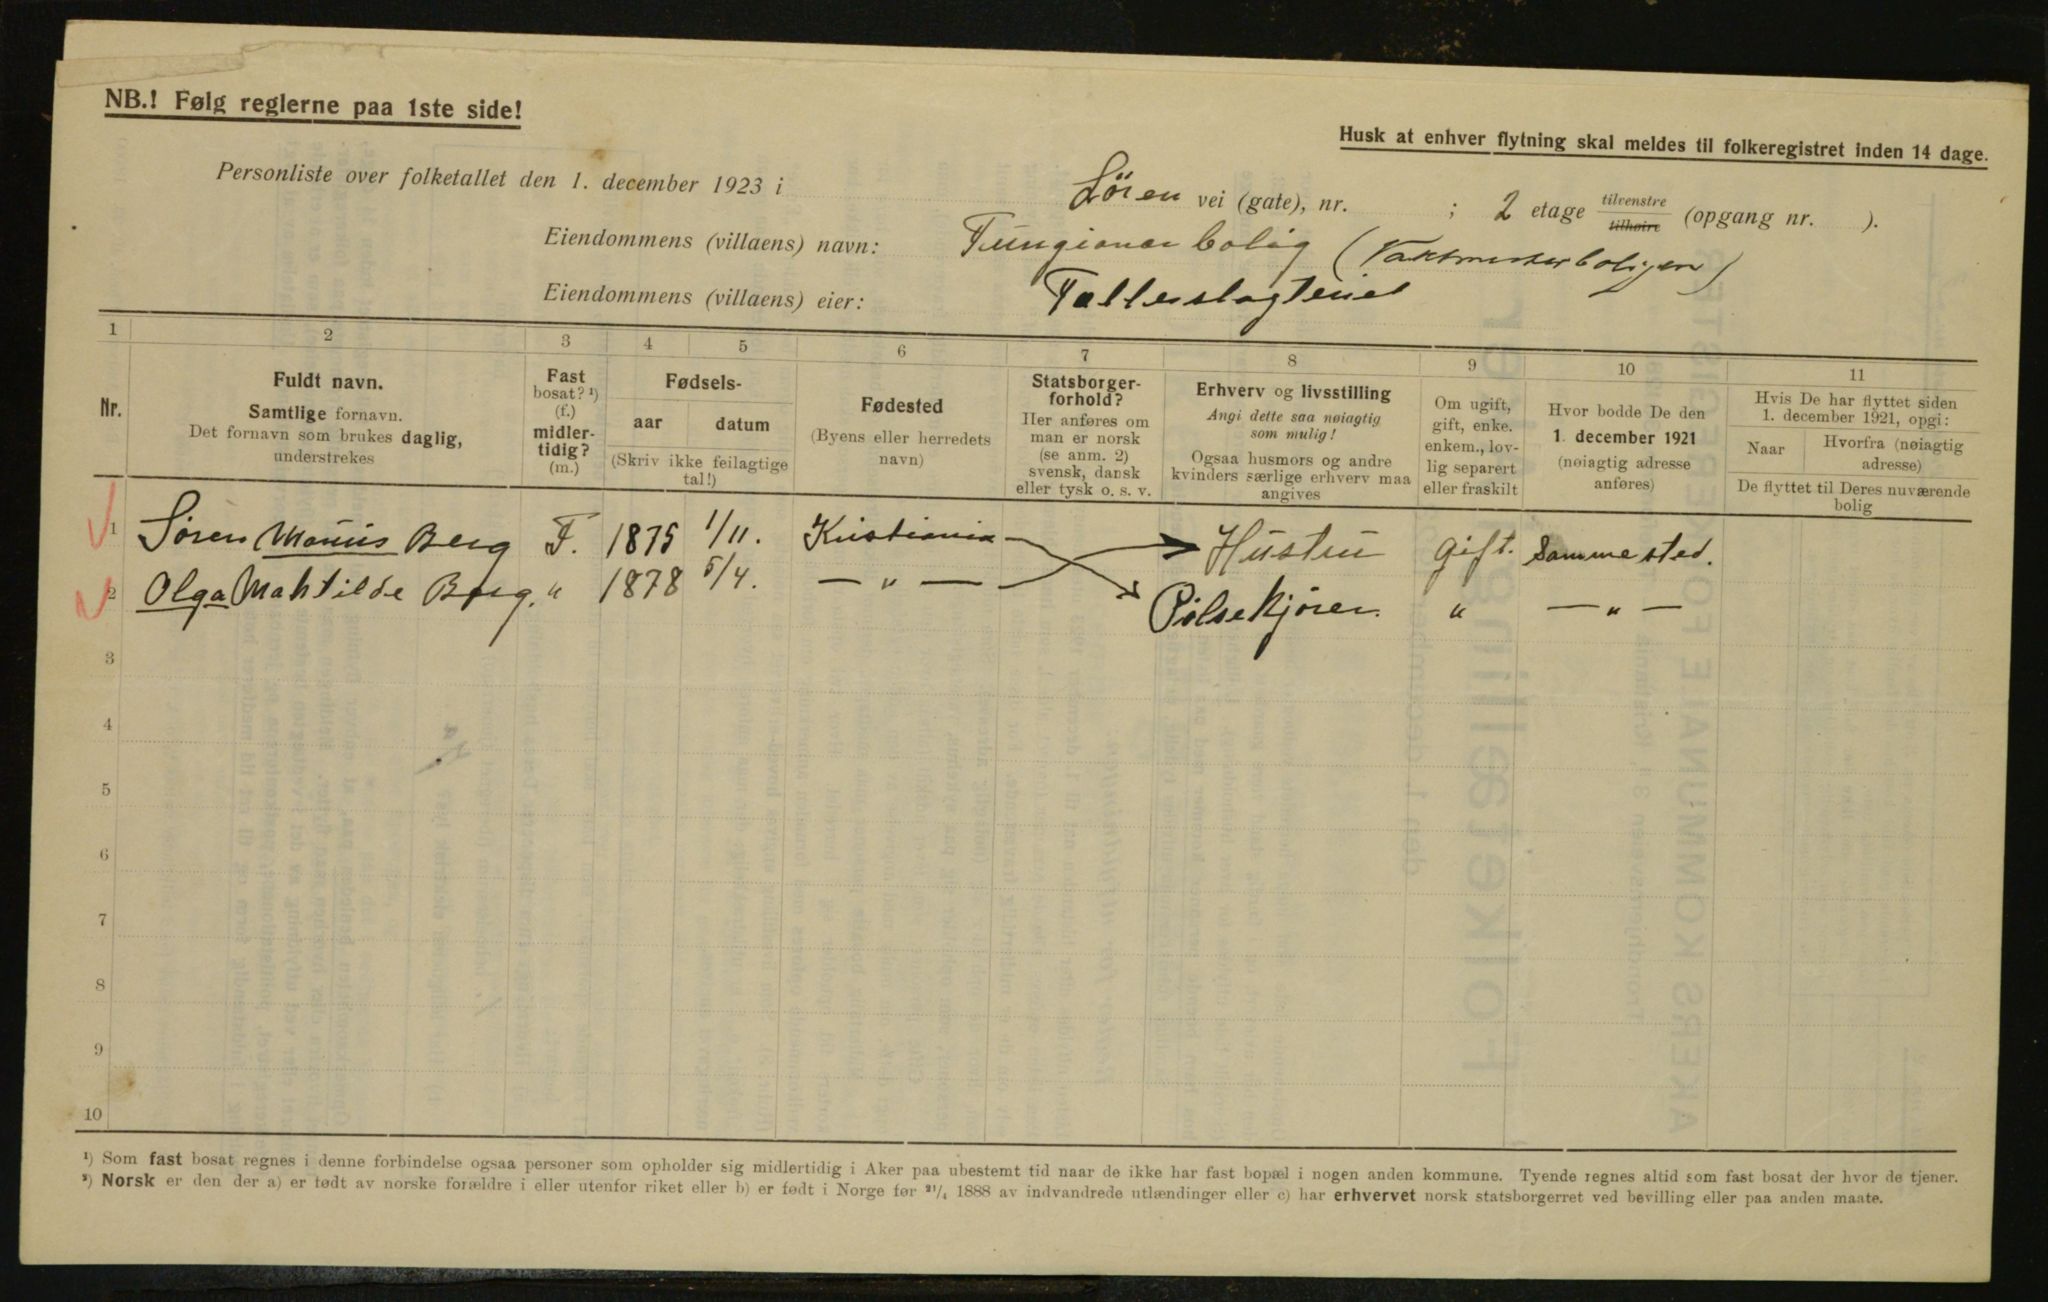 NB.! Følg reglerne paa 1ste side!
Husk at enhver flytning skal meldes til folkeregistret inden 14 dage.
Personliste over folketallet den 1. december 1923 i Lören vei (gate), nr. ; 2 etage tilvenstre tilhøire (opgang nr. ).
Eiendommens (villaens) navn: Fungionær bolig (Vaktmesterboligen)
Eiendommens (villaens) eier: Fellesslagteriet
1 2 3 4 5 6 7 8 9 10 11
Nr.
Fuldt navn.
Samtlige fornavn.
Det fornavn som brukes daglig,
understrekes
Fast
bosat? ¹)
(f.)
midler-
tidig?
(m.)
Fødsels-
aar datum
(Skriv ikke feilagtige
tal!)
Fødested
(Byens eller herredets
navn)
Statsborger-
forhold?
Her anføres om
man er norsk
(se anm. 2)
svensk, dansk
eller tysk o. s. v.
Erhverv og livsstilling
Angi dette saa nøiagtig
som mulig!
Ogsaa husmors og andre
kvinders særlige erhverv maa
angives
Om ugift,
gift, enke.
enkem., lov-
lig separert
eller fraskilt
Hvor bodde De den
1. december 1921
(nøiagtig adresse
anføres)
Hvis De har flyttet siden
1. december 1921, opgi:
Naar Hvorfra (nøiagtig
adresse)
De flyttet til Deres nuværende
bolig
1 Sören Marius Berg F. 1875 1/11. Kristiania Hustru Gift. Samme sted.
2 Olga Mahtilde Berg. " 1878 5/4. — " — Pölsekjører. " — " —
3
4
5
6
7
8
9
10
¹) Som fast bosat regnes i denne forbindelse ogsaa personer som opholder sig midlertidig i Aker paa ubestemt tid naar de ikke har fast bopæl i nogen anden kommune. Tyende regnes altid som fast bosat der hvor de tjener.
²) Norsk er den der a) er født av norske forældre i eller utenfor riket eller b) er født i Norge før ²¹/₄ 1888 av indvandrede utlændinger eller c) har erhvervet norsk statsborgerret ved bevilling eller paa anden maate.